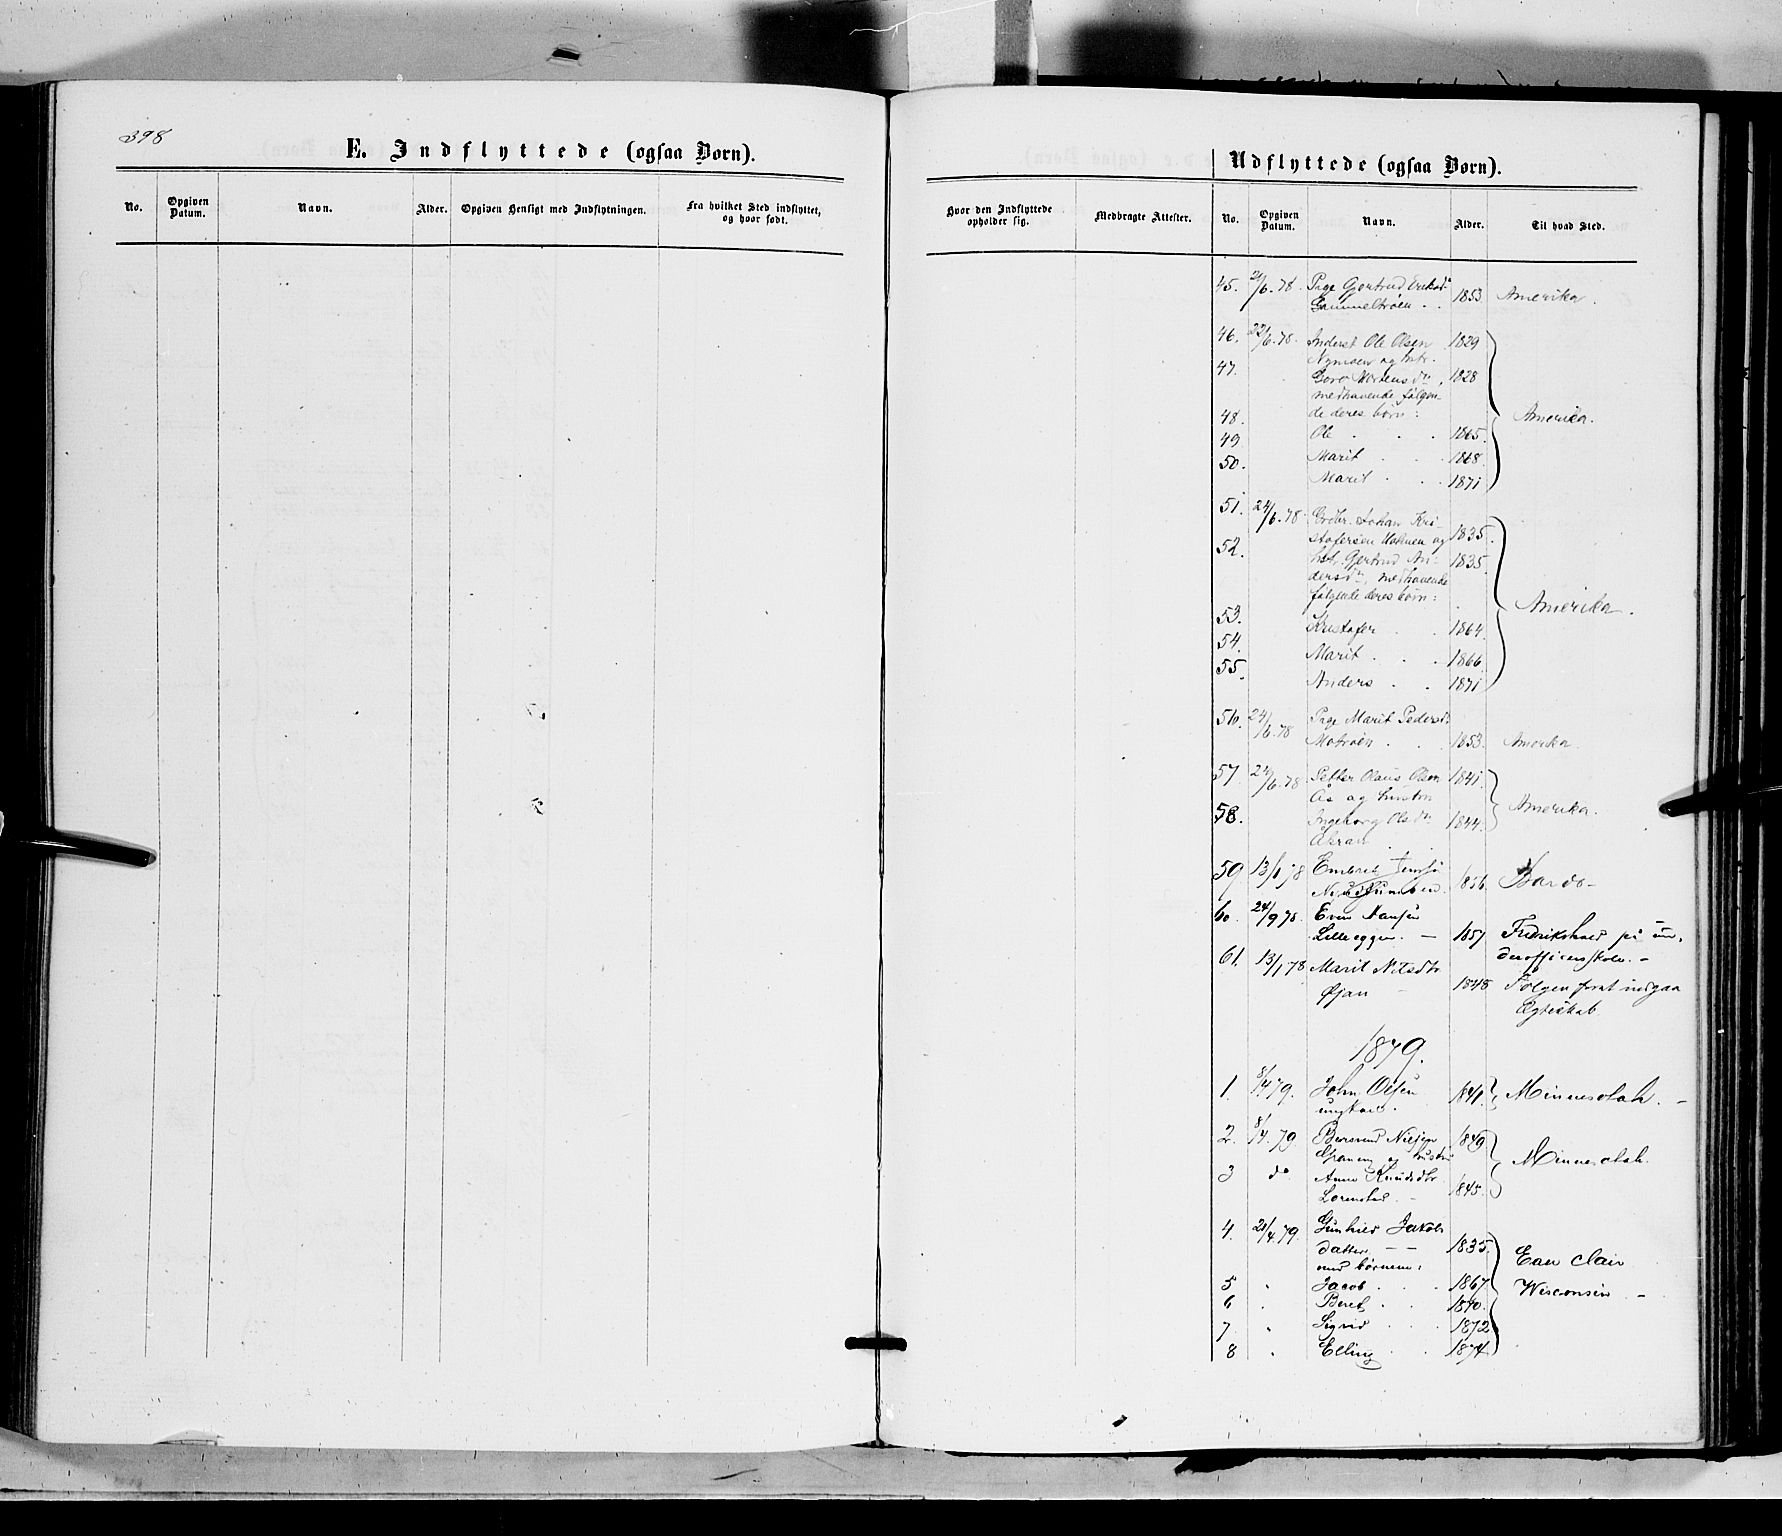 398
E. Indflyttede (ogsaa Børn).
No. Opgiven Datum. Navn. Alder. Opgiven Hensigt med Indflytningen. Fra hvilket Sted indflyttet, og hvor født.
Hvor den Indflyttede opholder sig. Medbragte Attester.
Udflyttede (ogsaa Børn).
No. Opgiven Datum. Navn. Alder. Til hvad Sted.
45. 21/6.78. Pige Gjertrud Eriksd.
Gammeltrøen . . 1853 Amerika.
46. 22/6.78. Anders Ole Olsen 1829
Nymoen og hstr.
47. Goro Mortensdr, 1828
medhavende følgen-
de deres børn: Amerika.
48. Ole . . . 1865.
49 Marit . . . 1868.
50. Marit . . . 1871
51. 24/6.78. Johan Kri-
stofersen og 1835.
52. hst. Gjertrud An- 1835.
dersdr, medhavende
følgende deres børn: Amerika.
53. Kristofer . . 1864.
54. Marit . . . 1866.
55. Anders . . 1871
56. 24/6.78 Pige Marit Pedersd.
Motrøen . . . 1853. Amerika.
57. 24/6.78 Petter Olaus Olsen 1841.
Ås og hustru Amerika.
58. Ingeborg Olsdr 1844.
Åkran
59 13/1 78 Embret Jensen
1856. Bardo-
60. 24/9 78. Even Hansen
Lilleeggen. — 1857 Fredrikshald på un-
derofficerskole. -
61. 13/1 78 Marit Nilsdtr
Øjan - 1848 Følgen forat indgaa
Egteskab
1879.
1. 8/4 79. John Olsen 1841. Minnesotah. -
ungkar.
2. 8/4.79. Bersvend Nilsen 1849.
og hustru Minnesotah.
3 do Anne Knudsdtr
1845.
4. 21/4.79. Gunhild Jakobs
datter — — 1835.
med børnene: Eau Clair
5 " Jacob . . . 1867 Wisconsin -
6 . Beret . . 1870.
7 " Sigrid . . . 1872
8 . Elling . . 1874.